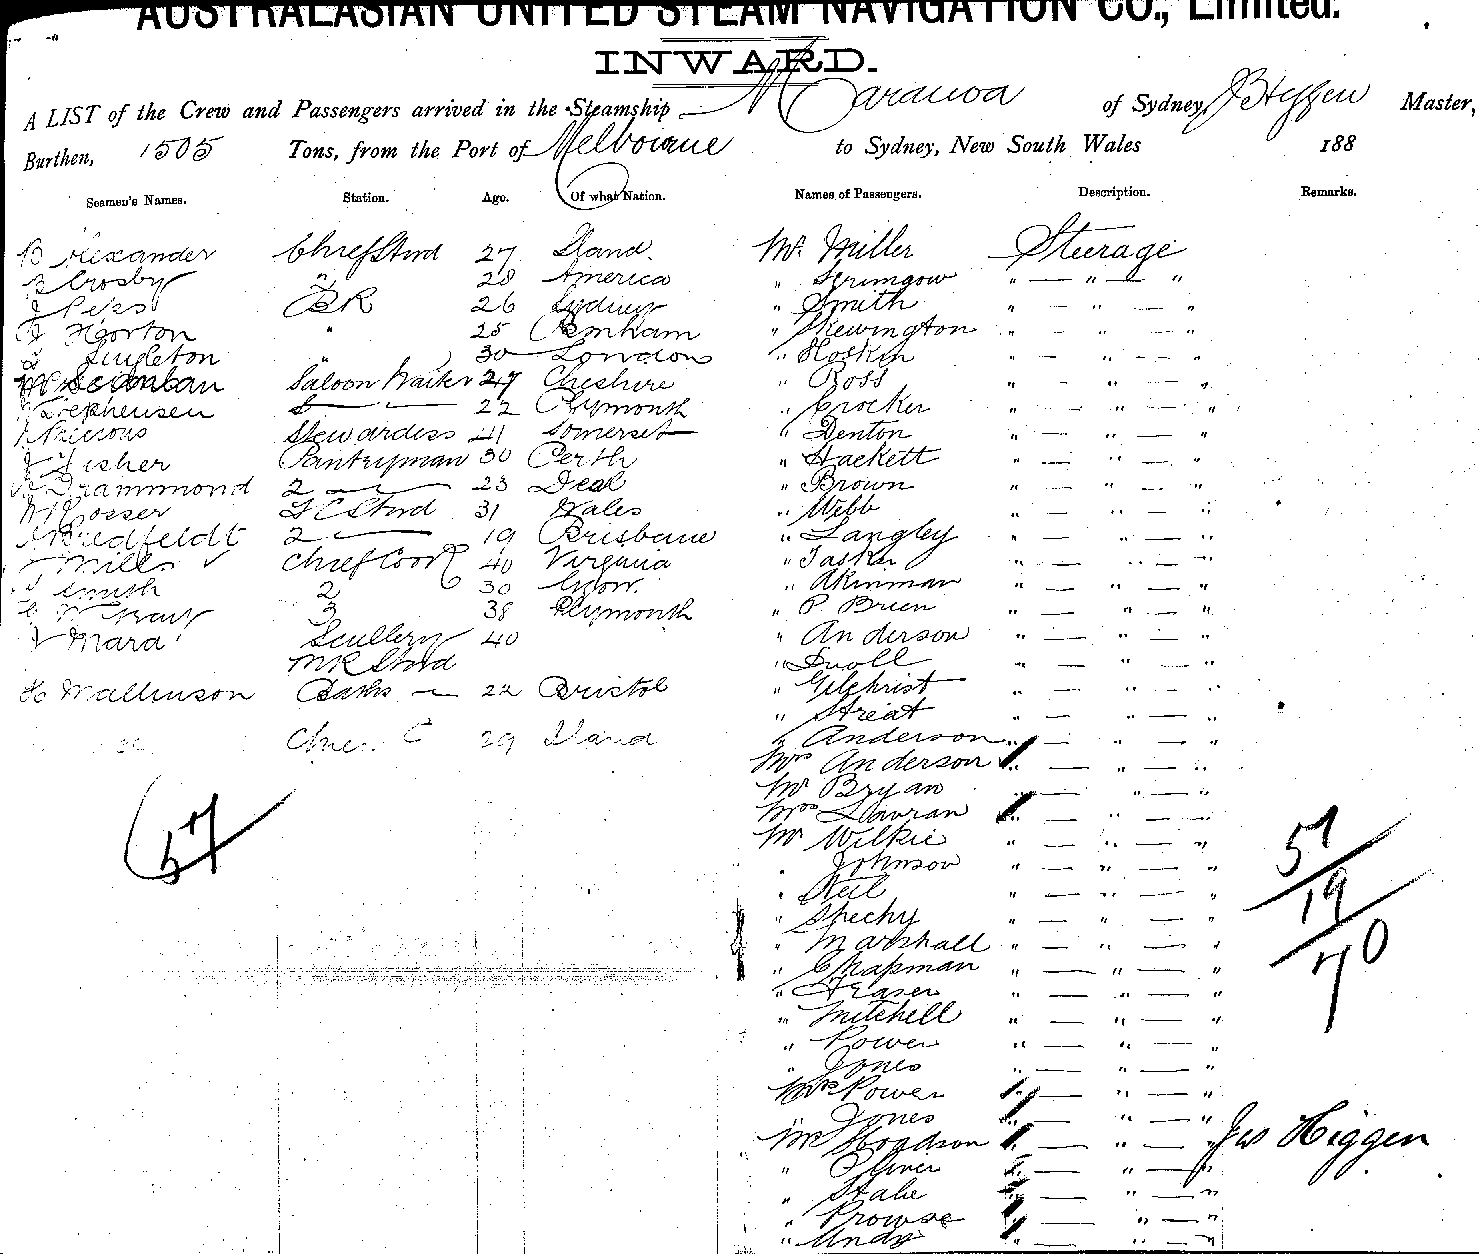 AUSTRALASIAN UNITED STEAM NAVIGATION CO., Limited.
INWARD.
A LIST of the Crew and Passengers arrived in the Steamship Maranoa of Sydney, Higgen Master,
Burthen, 1505 Tons, from the Port of Melbourne to Sydney, New South Wales 188
Seamen's Names. Station. Age. Of what Nation. Names of Passengers. Description. Remarks.
B Alexander Chief Stwd 27 Mr Miller Steerage
Crosby 2 28 America " Scrimgow " — " — "
26 Sydney " Smith " — " — "
Horton " 25 " Skewington " — " — "
Singleton " 30 London " Hoskin " — " — "
Saloon Waiter 27 Cheshire " Ross " — " — "
Stephensen 22 Plymouth " Crocker " — " — "
Stewardess 41 Somerset " Denton " — " — "
J Fisher Pantryman 30 Perth " Hackett " — " — "
Drammond 2 — 23 Deal " Brown " — " — "
Rosser Stwd 31 Wales " Webb " — " — "
Bredfeldt 2 — 19 Brisbane " Langley " — " — "
Mills Chief Cook 40 Virginia " Tasker " — " — "
Smith 2 30 " Akinman " — " — "
3 38 Plymouth " P. Brien " — " — "
Mara Scullery 40 " Anderson " — " — "
MR Stwd " — " — "
H Mallinson Baths — 22 Bristol " Gilchrist " — " — "
" Streat " — " — "
29 " Anderson " — " — "
Mrs Anderson " — " — "
Mr Bryan " — " — "
57 Mrs " — " — "
Mr Wilkie " — " — "
57
" Johnson " — " — "
" Keil " — " — "
19
" Shechy " — " — "
" Marshall " — " — "
70
" Chapman " — " — "
" Fraser " — " — "
" Mitchell " — " — "
" Power " — " — "
" Jones " — " — "
Mrs Power " — " — "
" Jones " — " — "
Mr Hoddson " — " — " Jas Higgen
" Oliver " — " — "
" Stahe " — " — "
" Prowse " — " — "
" Andy " — " — "